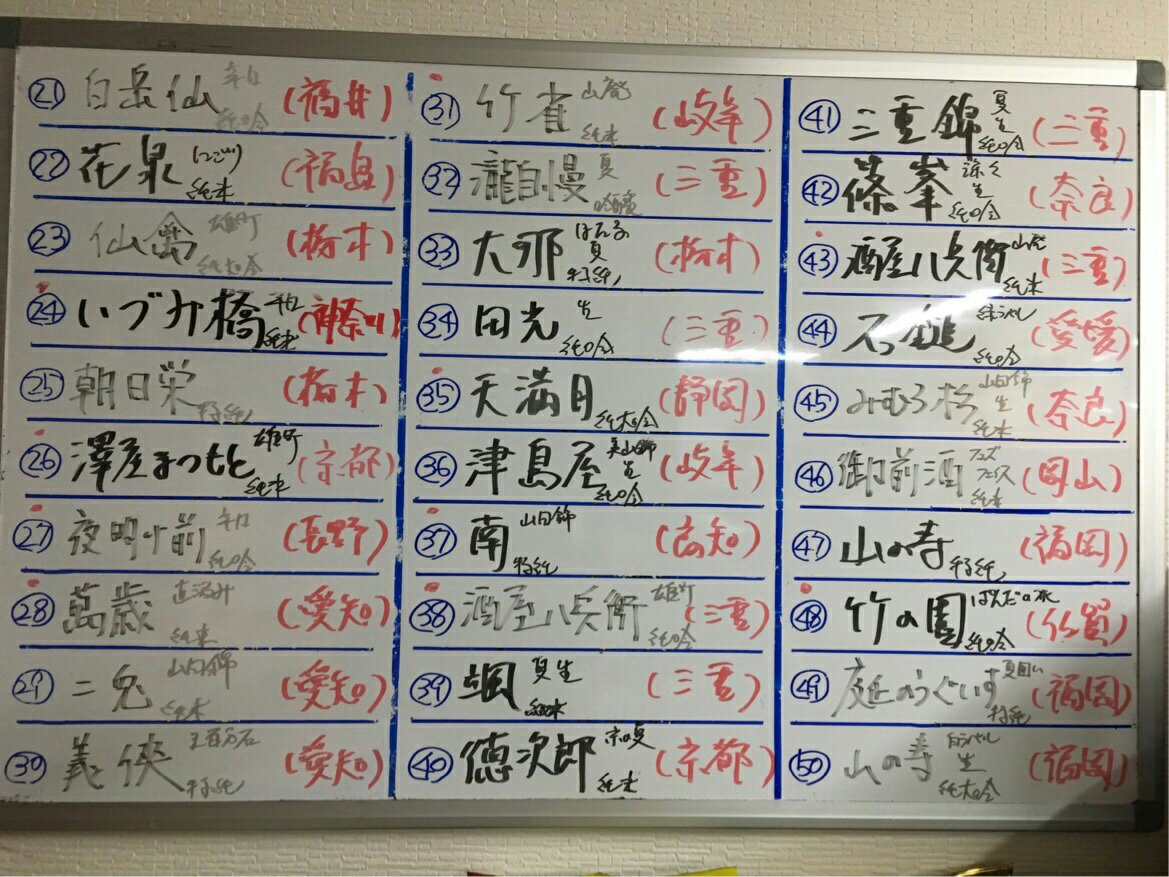 ㉑ 白岳仙 辛口 純吟 (福井)
㉒ 花泉 にごり 純米 (福島)
㉓ 仙禽 雄町 純大吟 (栃木)
㉔ いづみ橋 辛口 純米 (神奈川)
㉕ 朝日栄 特純 (栃木)
㉖ 澤屋まつもと 雄町 純米 (京都)
㉗ 夜明け前 辛口 純吟 (長野)
㉘ 萬歳 直汲み 純米 (愛知)
㉙ 二兎 山田錦 純米 (愛知)
㉚ 義侠 五百万石 特純 (愛知)
㉛ 竹雀 山廃 純米 (岐阜)
㉜ 瀧自慢 夏 (三重)
㉝ 大那 ほたる 夏 特純 (栃木)
㉞ 田光 生 純吟 (三重)
㉟ 天満月 純大吟 (静岡)
㊱ 津島屋 美山錦 生 純吟 (岐阜)
㊲ 南 山田錦 特純 (高知)
㊳ 酒屋八兵衛 雄町 純吟 (三重)
㊴ 颯 夏生 純米 (三重)
㊵ 徳次郎 京の夏 純米 (京都)
㊶ 三重錦 夏 生 純吟 (三重)
㊷ 篠峯 涼々 生 純吟 (奈良)
㊸ 酒屋八兵衛 山廃 純米 (三重)
㊹ 石鎚 純吟 (愛媛)
㊺ みむろ杉 山田錦 生 純米 (奈良)
㊻ 御前酒 フェイス 純米 (岡山)
㊼ 山の寿 特純 (福岡)
㊽ 竹の園 純吟 (佐賀)
㊾ 庭のうぐいす 夏囲い 特純 (福岡)
㊿ 山の寿 生 純大吟 (福岡)